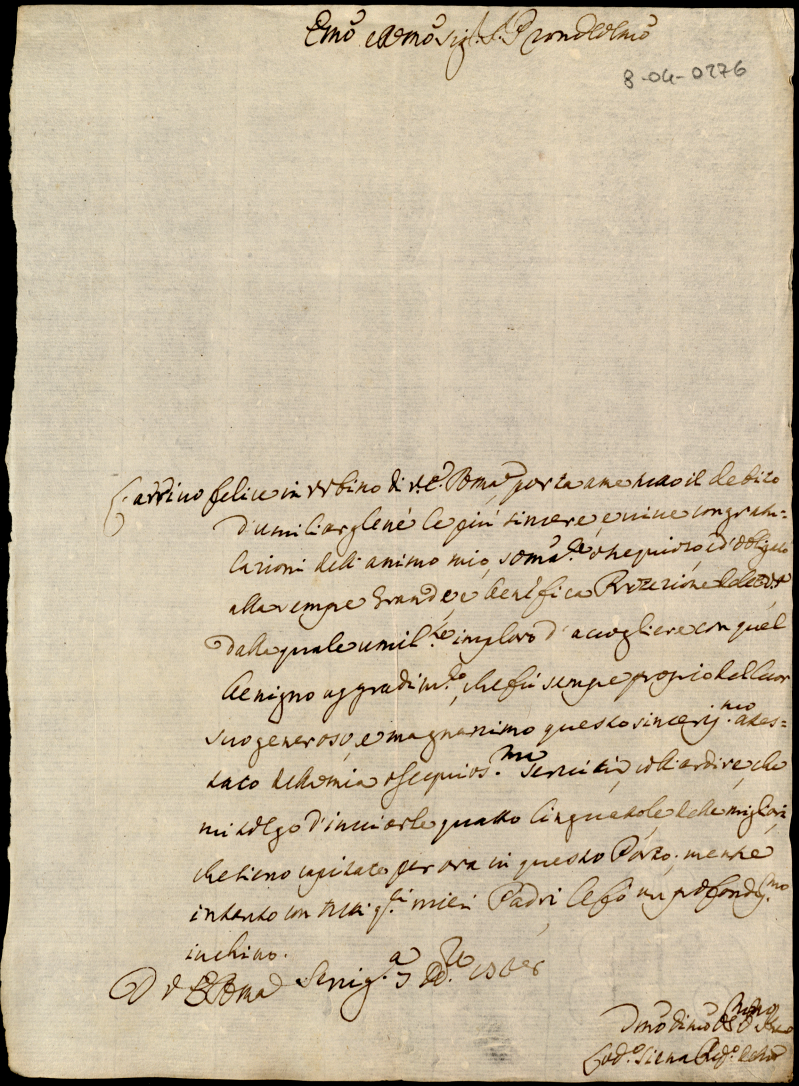 Emõ e Rmõ Sig.r S. P. ron Colmõ
8-04-0276
L'arrivo felice in Urbino di V. E. Rma porta a me seco il debito
d'umiliarglene le più sincere, e vive congratu=
lazioni dell'animo mio, somam.te ossequioso, ed'obligato
alla sempre Grande, e Benefica Protezione dell'E. V.
dalla quale umil.te imploro d'accogliere con quel
benigno aggradim.to, che fù sempre proprio del Cuor
suo generoso, e magnanimo questo sincerij.mo attes=
tato della mia ossequios.ma servitù, coll'ardire, che
mi tolgo d'inviarle quatto linguatole delle migliori
che sieno capitate per ora in questo Porto; mentre
intanto con tutti q.sti miei Padri, le fò un profondis.mo
inchino.
D V E Rma Senig.a 7 Xb.re